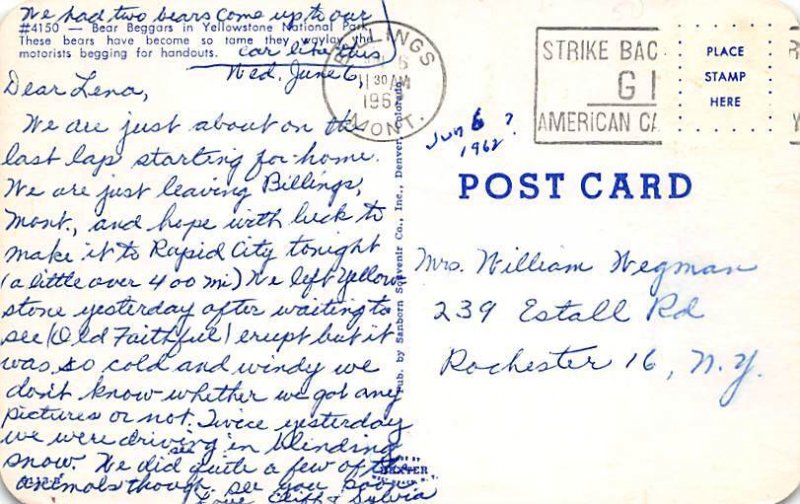 We had two bears come up to our
#4150 — Bear Beggars in Yellowstone National Park
These bears have become so tame they waylay the
motorists begging for handouts. car like this.
Wed. June 6,
Dear Lena,
We are just about on the
last lap starting for home.
We are just leaving Billings,
Mont., and hope with luck to
make it to Rapid City tonight
(a little over 400 mi.) We left Yellow
stone yesterday after waiting to
see (Old Faithful) erupt but it
was so cold and windy we
don't know whether we got any
pictures or not. Twice yesterday
we were driving in blinding
snow. We did see quite a few of the
animals though. See you soon
Love, Cliff & Sylvia
Pub. by Sanborn Souvenir Co., Inc., Denver, Colorado
DEXTER
BILLINGS
30 AM
196
MONT.
STRIKE BAC
GI
AMERICAN CA
PLACE
STAMP
HERE
Jun 6 ?
1962
POST CARD
Mrs. William Wegman
239 Estall Rd
Rochester 16, N.Y.